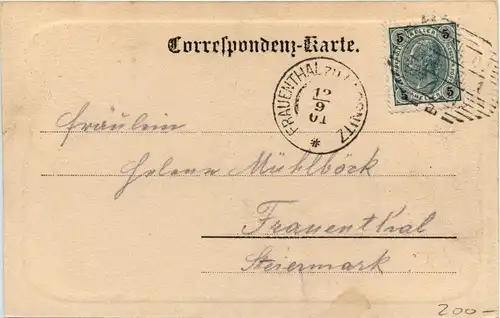 Correspondenz-Karte.
5 5
5 5
FRAUENTHAL
12
9
01
Fräulein
Helene Mühlböck
Frauenthal
Steiermark
200-